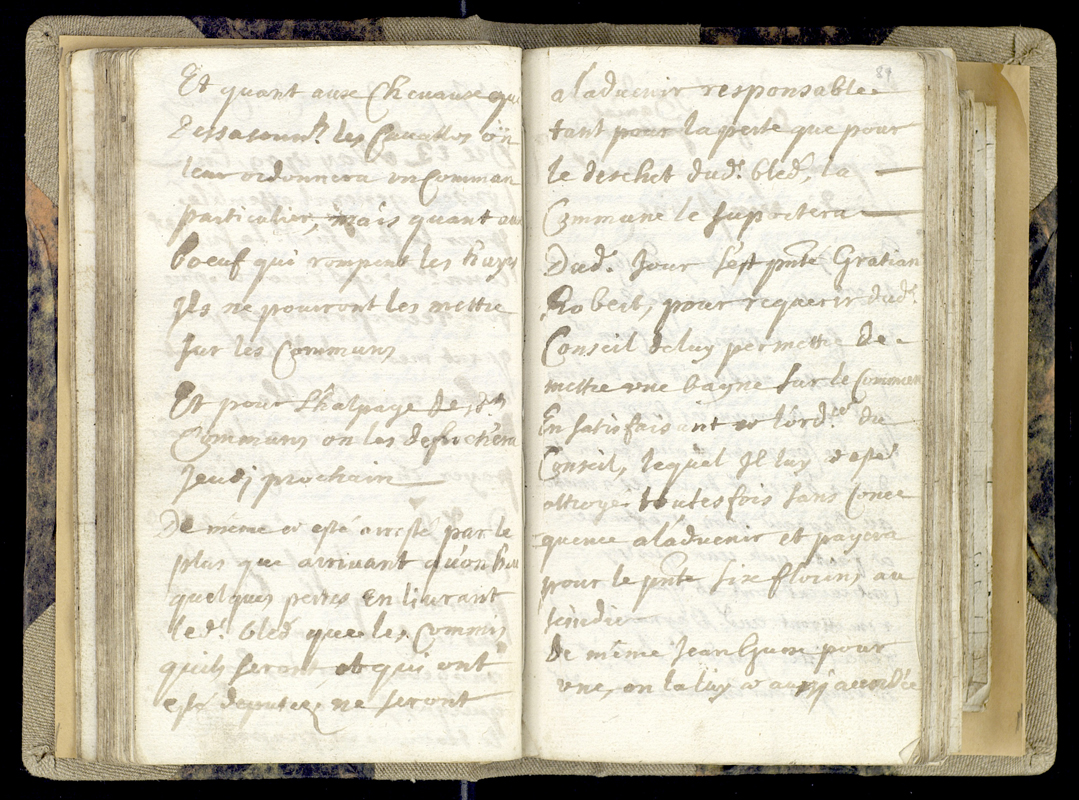 Et quant aux Chevause qui
les Cavalles on
leur ordonnera un Commun
particulier, mais quant au
boeuf qui rompent les hayes
Ils ne pouront les mettre
sur les Communs
Et pour Lhalpage desds
Communs on les defrichera
Jeudj prochain
De méme a esté arresté par le
plus que arrivant qu'on heu
quelques pertes En livrant
led. bled que les Commis
quils seront et qui ont
esté deputéz ne seront
89
aladvenir responsable
tant pour la perte que pour
le deschet dud. bled, la
Commune le suportera
Dud. Jour s'est pnté Gratian
Robert, pour requerir dud.
Conseil de luy permettre de
mettre vne bagne sur le Commun
En satisfaisant a lord.ce du
Conseil, lequel Il luy a esté
ottroye toutesfois sans Conce
quence aládvenir et payera
pour le pnte six florins au
sindic
de méme Jean Gum pour
vne, on la luy a aussj accordée